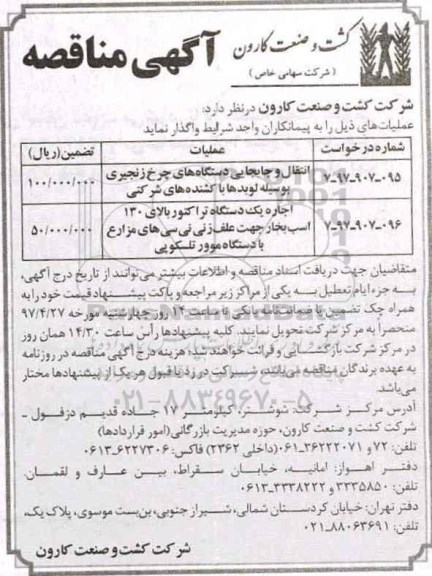 کشت و صنعت کارون
( شرکت سهامی خاص )
آگهی مناقصه
شرکت کشت و صنعت کارون درنظر دارد:
عملیات‌های ذیل را به پیمانکاران واجد شرایط واگذار نماید
شماره درخواست عملیات تضمین(ریال)
۷-۹۷-۹۰۷-۰۹۵ انتقال و جابجایی دستگاه‌های چرخ زنجیری بوسیله لوبدها با کشنده‌های شرکتی ۱۰۰/۰۰۰/۰۰۰
۷-۹۷-۹۰۷-۰۹۶ اجاره یک دستگاه تراکتور بالای ۱۳۰ اسب بخار جهت علف زنی نی سی‌های مزارع با دستگاه موور تلسکوپی ۵۰/۰۰۰/۰۰۰
متقاضیان جهت دریافت اسناد مناقصه و اطلاعات بیشتر می‌توانند از تاریخ درج آگهی،
به جزء ایام تعطیل به یکی از مراکز زیر مراجعه و پاکت پیشنهاد قیمت خود را به
همراه چک تضمین یا ضمانت‌نامه بانکی تا ساعت ۱۴ روز چهارشنبه مورخه ۹۷/۴/۲۷
منحصراً به مرکز شرکت تحویل نمایند. کلیه پیشنهادها رأس ساعت ۱۴/۳۰ همان روز
در مرکز شرکت بازگشایی و قرائت خواهند شد؛ هزینه درج آگهی مناقصه در روزنامه
به عهده برندگان مناقصه می‌باشد، شرکت در رد یا قبول هر یک از پیشنهادها مختار
می‌باشد.
۰۲۱-۸۸۳۴۹۶۷۰-۵
آدرس مرکز شرکت: شوشتر، کیلومتر ۱۷ جاده قدیم دزفول -
شرکت کشت و صنعت کارون، حوزه مدیریت بازرگانی(امور قراردادها)
تلفن: ۷۲ و ۳۶۲۲۲۰۷۱-۰۶۱(داخلی ۲۳۶۲) فاکس: ۶۲۲۷۳۰۶-۰۶۱۳
دفتر اهواز: امانیه، خیابان سقراط، بین عارف و لقمان.
تلفن: ۳۳۳۵۸۵۰ و ۳۳۳۸۲۲۲-۰۶۱۳
دفتر تهران: خیابان کردستان شمالی، شیراز جنوبی، بن‌بست موسوی، پلاک یک،
تلفن: ۸۸۰۶۳۶۹۱-۰۲۱
شرکت کشت و صنعت کارون